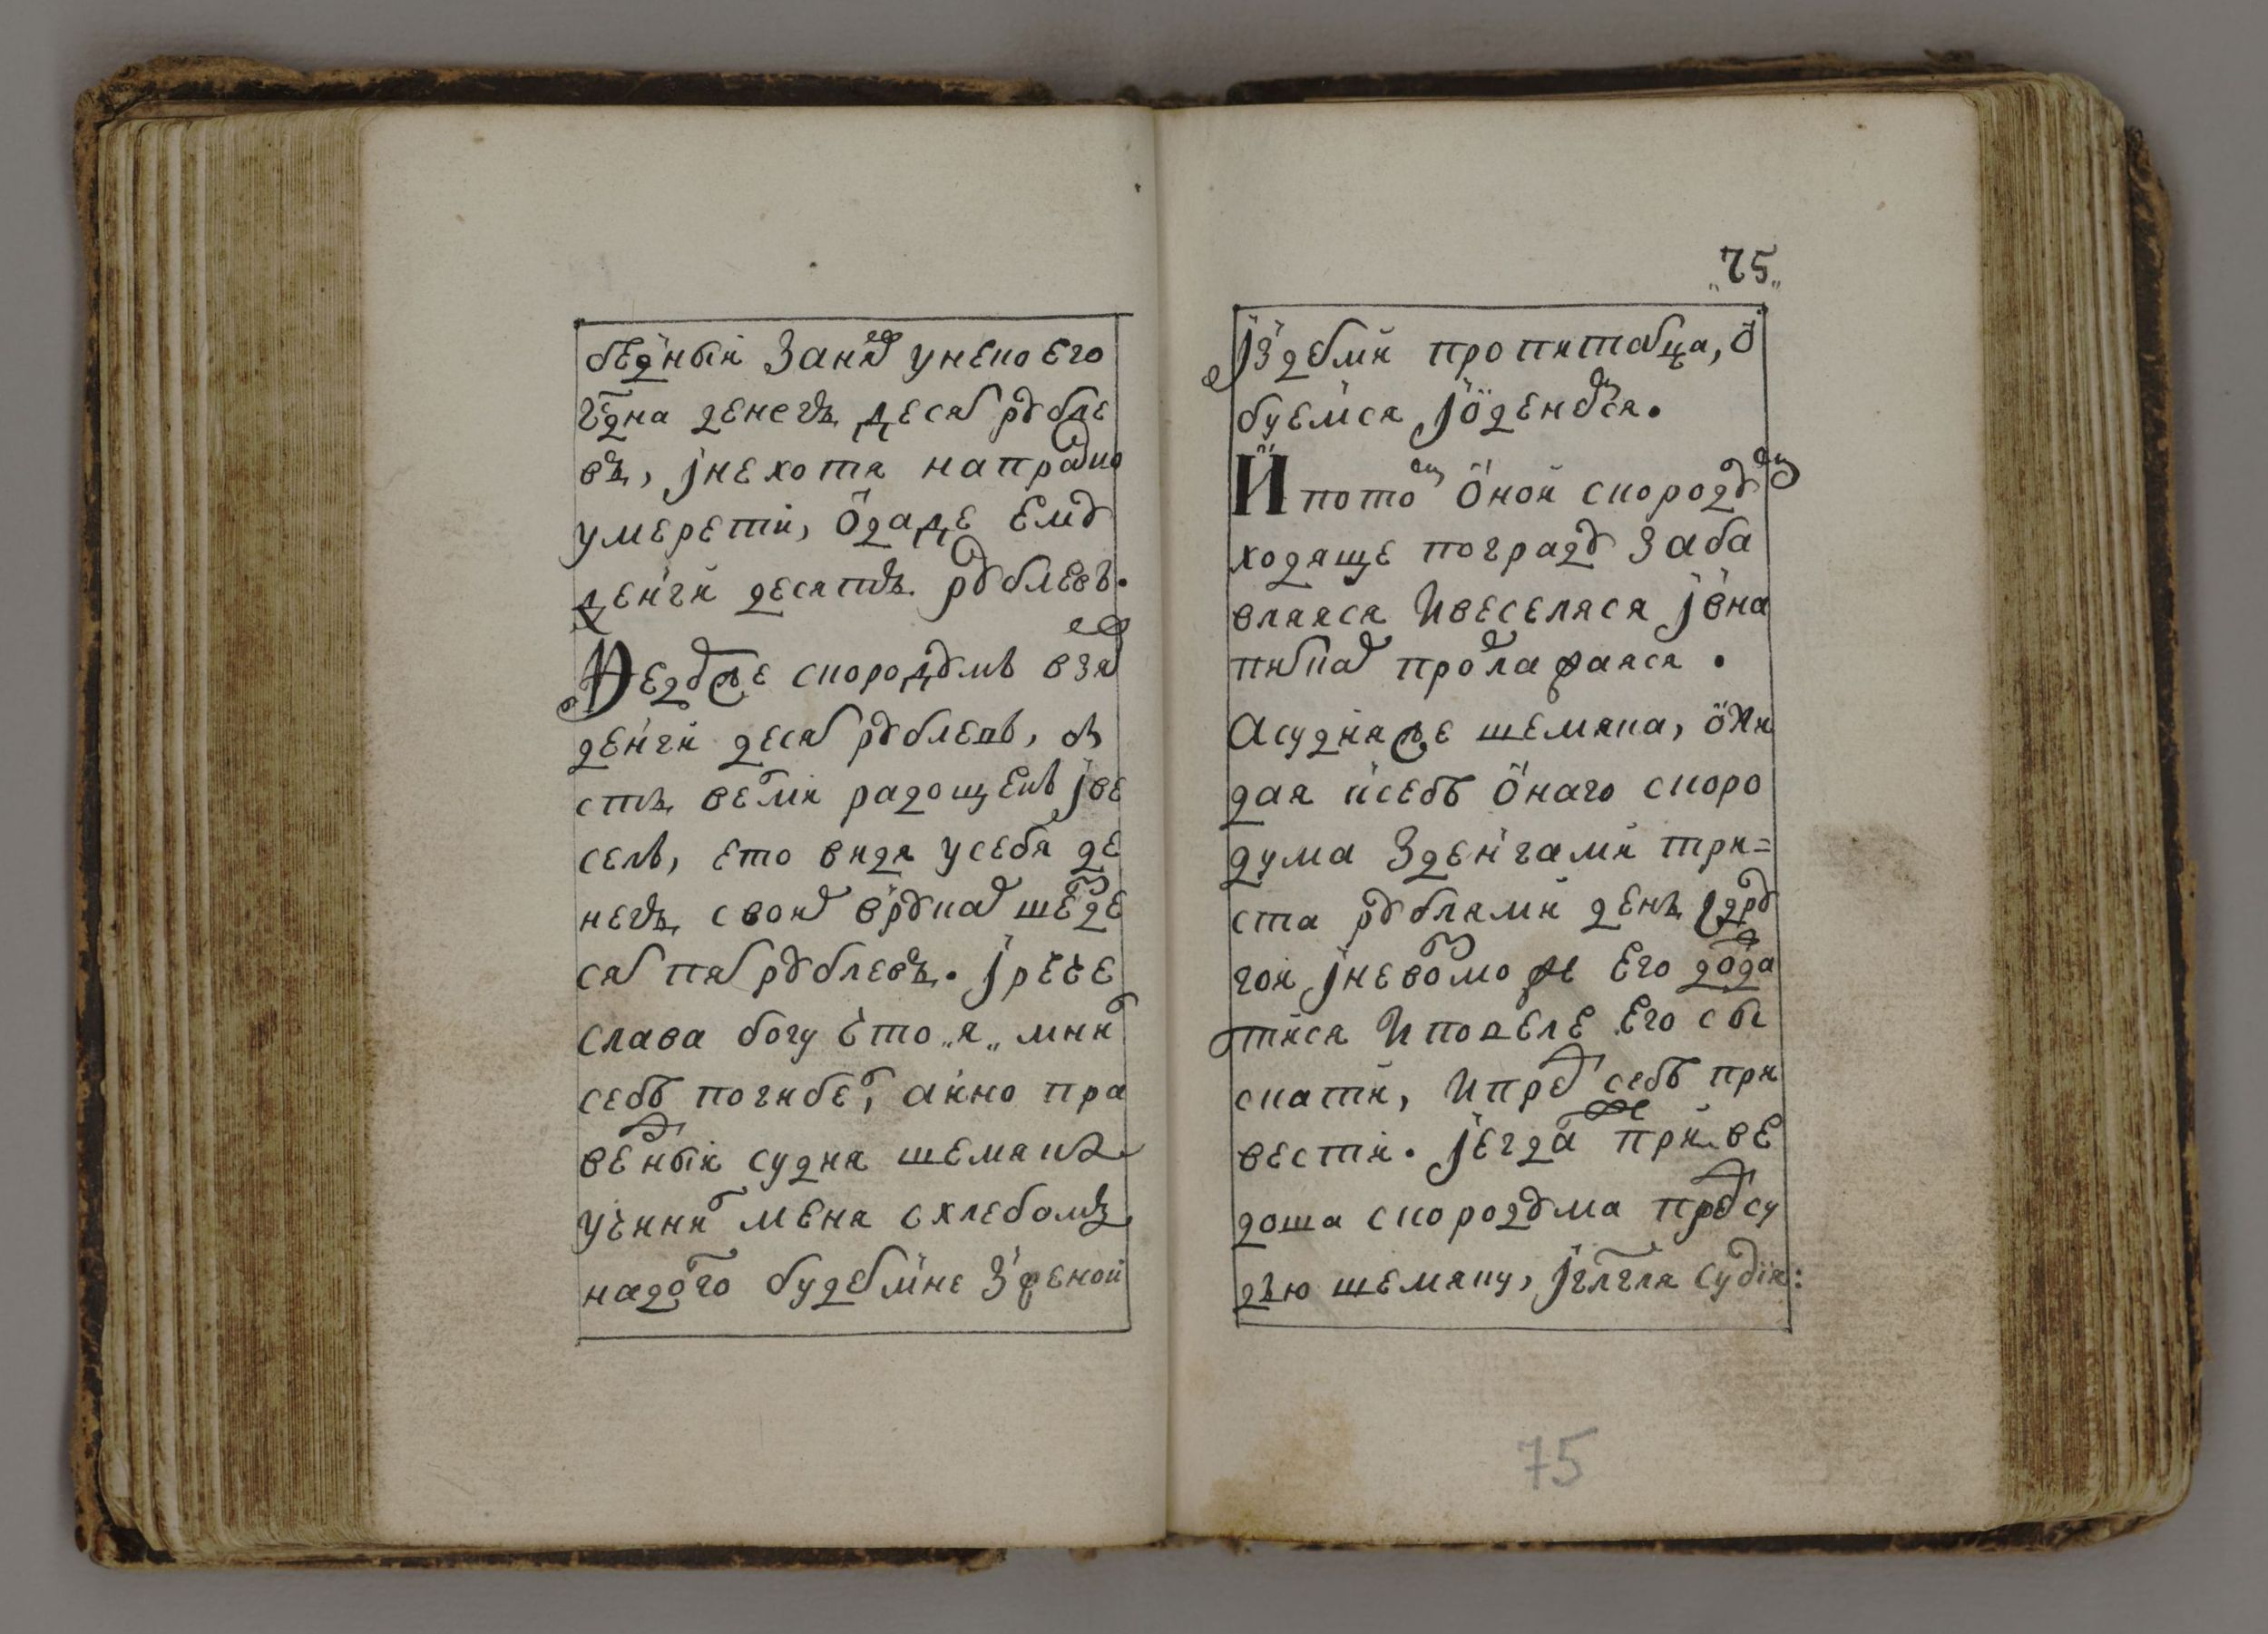 бѣдныи Занѧ унѣко его
чєдна денегъ десѧ рублє
въ, јнехотя напраⷭно
умеретй, ӧдаде Емꙋ
денги десять рꙋблевъ.
Нездꙋже скородꙋмъ взя
денги деся рꙋблевъ, и
сть велми радощенъ јве
селъ, ето видя усебя де
негъ своиⷯ врꙋкаⷯ шездє
ся пя рꙋблевъ. јрече
слава богу што „я„ мни
себѣ погибеⷧ, анно пра
веⷣныи судия шемяка
учини мѣня схлебомъ
надоⷧго будетмнѣ Зженой
75
јздетми пропитаца, ӧ
буемся јӧденемся.
Й потоⷨ ӧной скородꙋм
ходяще пограду Заба
вляяся Ивеселяся јвна
питкаⷯ прохлажаяся.
Асудияже шемяка, ӧжи
дая ксебѣ ӧнаго скоро
дума Зденгами три=
ста рꙋблями день, дрꙋ
гои јневозможе Его дожда
тися Иповеле Его сы
скати, Ипред себѣ при
вести. јегдаже приве
доша скородꙋма предсу
дию шемяку, јглгля судия:
75